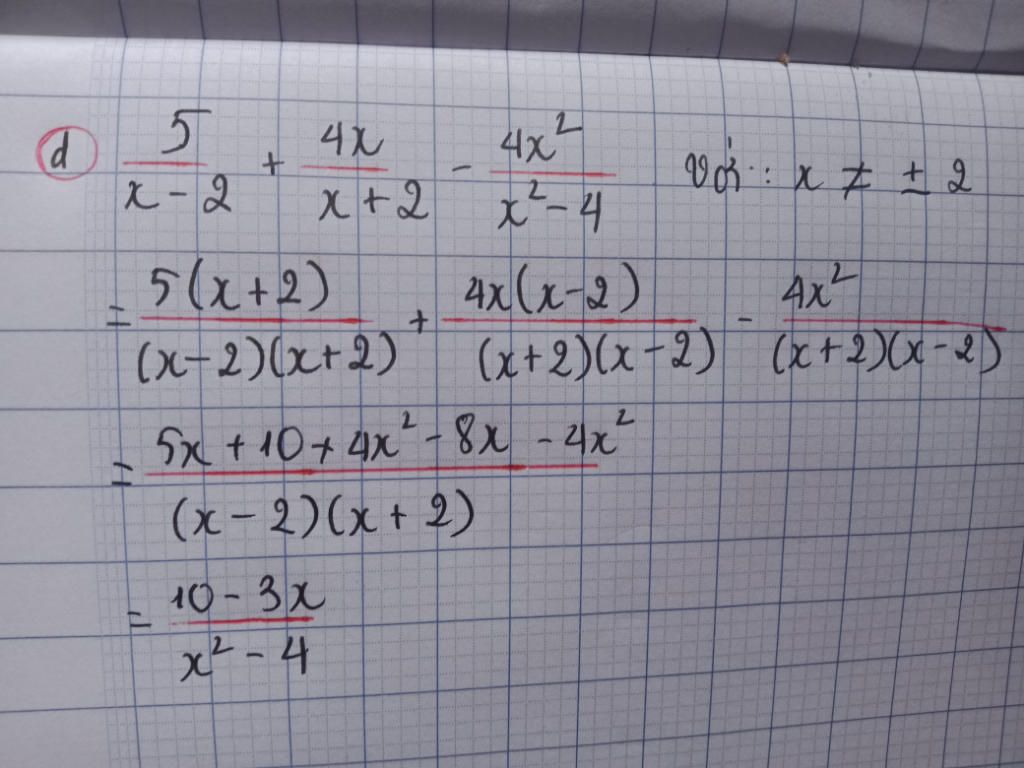 d 5/(x - 2) + 4x/(x + 2) - 4x²/(x² - 4) với: x ≠ ± 2
= 5(x + 2)/((x - 2)(x + 2)) + 4x(x - 2)/((x + 2)(x - 2)) - 4x²/((x + 2)(x - 2))
= (5x + 10 + 4x² - 8x - 4x²)/((x - 2)(x + 2))
= (10 - 3x)/(x² - 4)